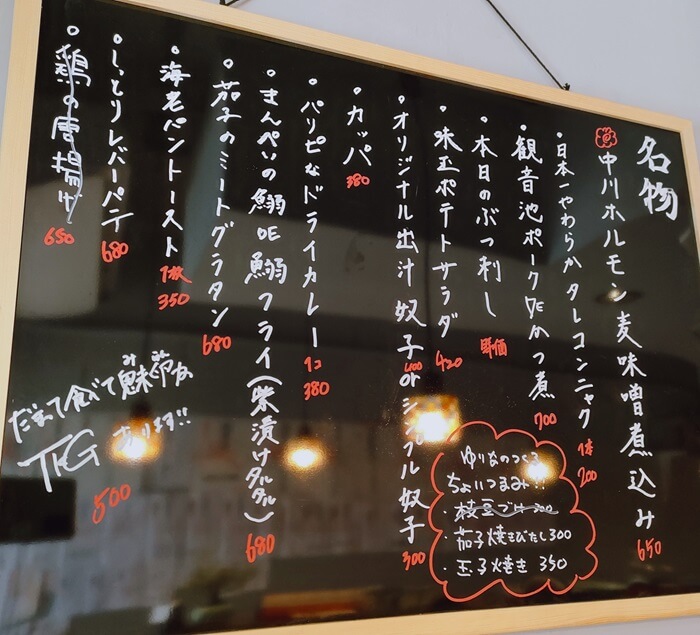 名物
中川ホルモン麦味噌煮込み 650
・日本一やわらかタレコンニャク 1本 200
・観音池ポークDEかつ煮 700
・本日のぶつ刺し 時価
・味玉ポテトサラダ 420
・オリジナル出汁奴子400 orシンプル奴子 300
・カッパ 380
・パリピなドライカレー 1コ 380
・きんぺいの鰯DE鰯フライ(柴漬けタルタル) 680
・茄子のミートグラタン 680
・海老パントースト 1枚 350
・しっとりレバーパテ 680
・鶏の唐揚げ 650
だまって食べて
あります!!
TKG 500
ゆりなのつくる
ちょいつまみ!!
・枝豆 300
・茄子焼きびたし300
・玉子焼き 350